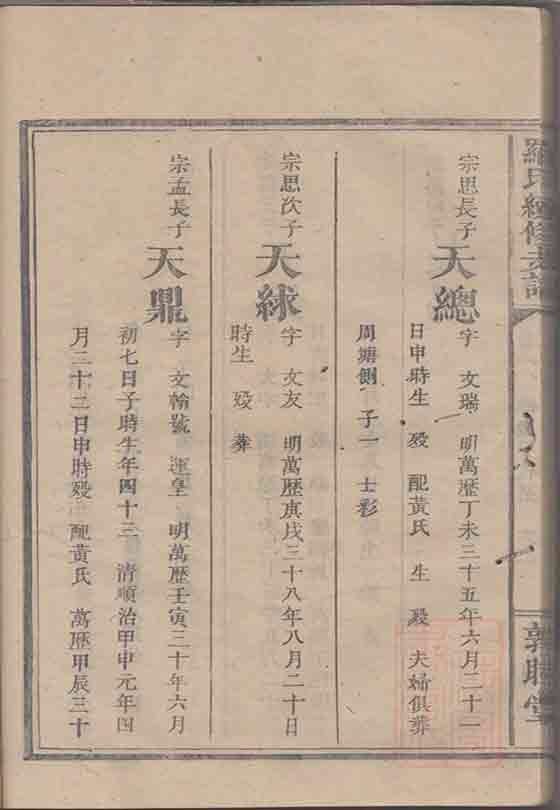 羅氏經修支譜
敦睦堂
宗思長子 天總 字 文瑞 明萬歷丁未三十五年六月二十一
日申時生 歿 配黃氏 生 歿 夫婦俱葬
周塘側 子一 士彩
宗思次子 天絿 字 文友 明萬歷庚戌三十八年八月二十日
時生 歿 葬
宗孟長子 天鼎 字 文翰號 運皇 明萬歷壬寅三十年六月
初七日子時生年四十三 清順治甲申元年四
月二十二日申時歿 配黃氏 萬歷甲辰三十